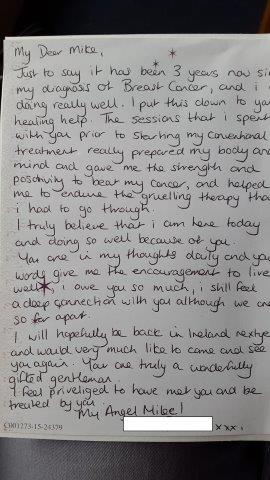 My Dear Mike,
Just to say it has been 3 years now si
my diagnosis of Breast Cancer, and i
doing really well. I put this down to yo
healing help. The sessions that i spent
with you prior to starting my conventional
treatment really prepared my body an
mind and gave me the strength and
positivity to beat my cancer, and helped
me to endure the gruelling therapy tha
i had to go through.
I truly believe that i am here today
and doing so well because of you.
You are in my thoughts daily and you
words give me the encouragement to live
well i owe you so much, i still feel
a deep connection with you although we are
so far apart.
I will hopefully be back in Ireland next ye
and would very much like to come and see
you again. You are truly a wonderfully
gifted gentleman.
I feel priveliged to have met you and be
treated by you.
My Angel Mike!
C001273-15-24379
xxx.